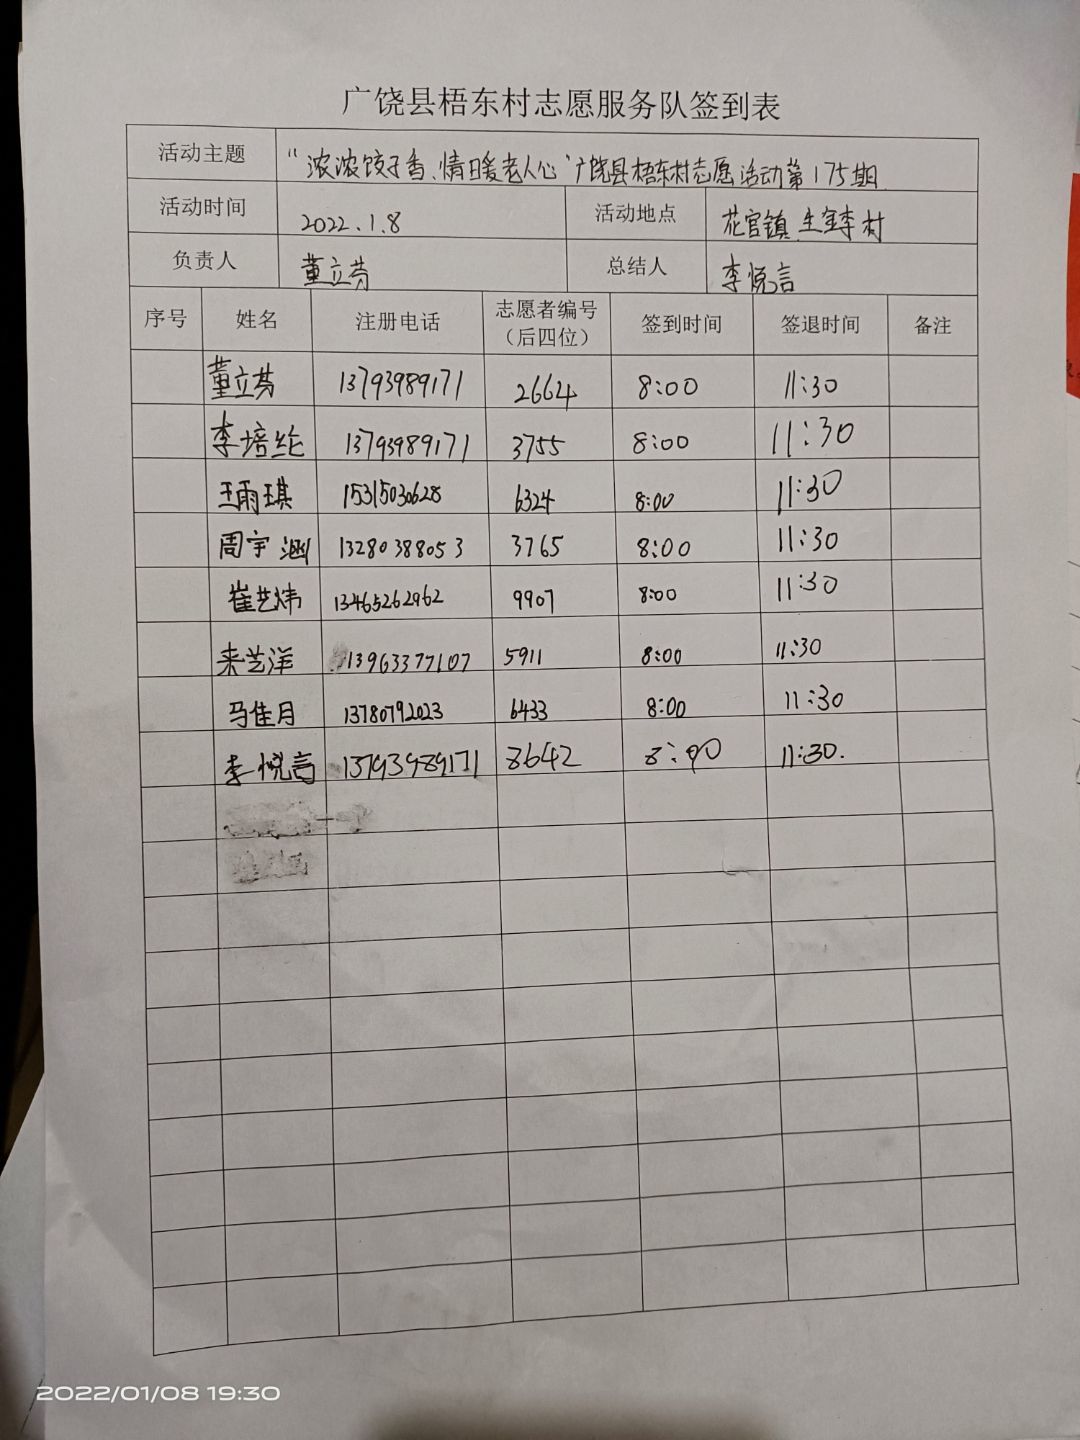 广饶县梧东村志愿服务队签到表
活动主题 “浓浓饺子香、情暖老人心”广饶县梧东村志愿活动第175期
活动时间 2022.1.8 活动地点 花官镇 李村
负责人 董立芬 总结人 李悦言
序号 姓名 注册电话 志愿者编号（后四位） 签到时间 签退时间 备注
董立芬 13793989171 2664 8:00 11:30
李培纶 13793989171 3755 8:00 11:30
王雨琪 15315030628 6324 8:00 11:30
周宇涵 13280388053 3765 8:00 11:30
崔艺炜 13465262962 9907 8:00 11:30
来芝洋 13963377107 5911 8:00 11:30
马佳月 13780792023 6433 8:00 11:30
李悦言 13793989171 8642 8:00 11:30.
2022/01/08 19:30